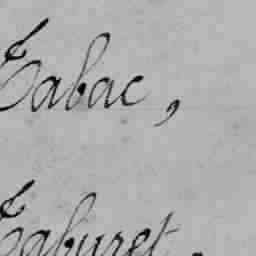 Tabac,
Taburet.